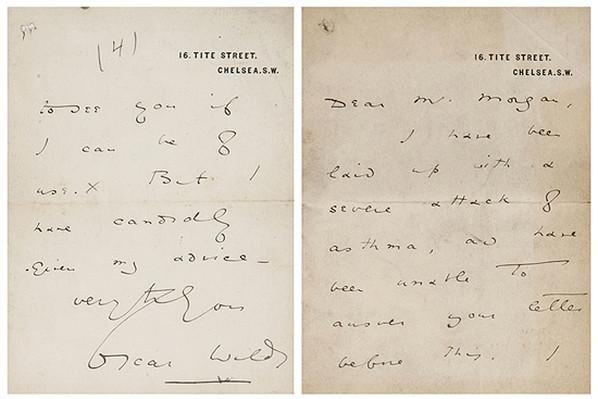 (4)
16. TITE STREET.
CHELSEA.S.W.
to see you if
I can be of
use. X But I
have candidly
given my advice—
very truly yours
Oscar Wilde
16. TITE STREET.
CHELSEA.S.W.
Dear Mr. Morgan,
I have been
laid up with a
severe attack of
asthma, and have
been unable to
answer your letter
before this. I